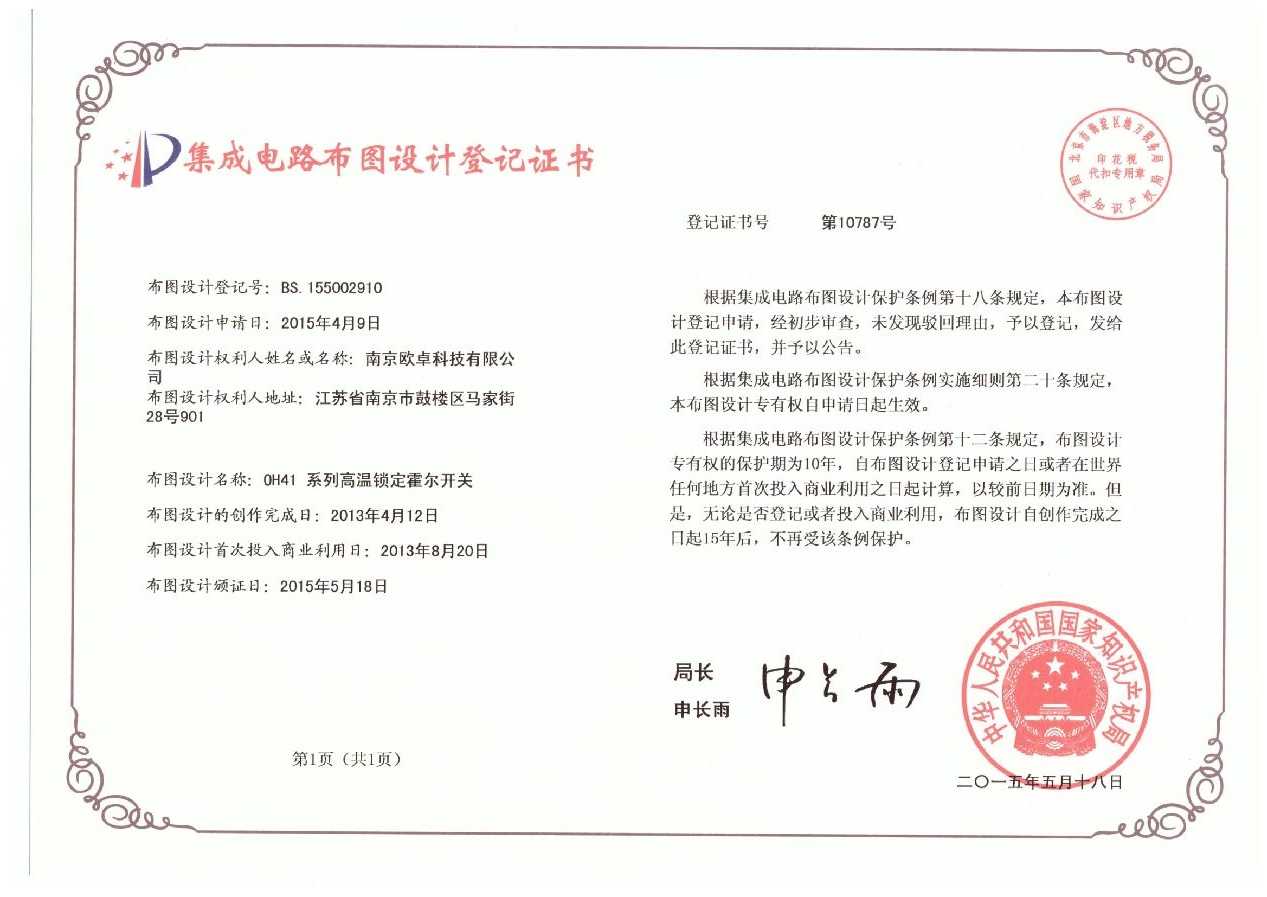 集成电路布图设计登记证书
北京市海淀区地方税务局
印花税
代扣专用章
国家知识产权局
登记证书号 第10787号
布图设计登记号：BS.155002910
布图设计申请日：2015年4月9日
布图设计权利人姓名或名称：南京欧卓科技有限公
司
布图设计权利人地址：江苏省南京市鼓楼区马家街
28号901
布图设计名称：OH41 系列高温锁定霍尔开关
布图设计的创作完成日：2013年4月12日
布图设计首次投入商业利用日：2013年8月20日
布图设计颁证日：2015年5月18日
第1页（共1页）
根据集成电路布图设计保护条例第十八条规定，本布图设
计登记申请，经初步审查，未发现驳回理由，予以登记，发给
此登记证书，并予以公告。
根据集成电路布图设计保护条例实施细则第二十条规定，
本布图设计专有权自申请日起生效。
根据集成电路布图设计保护条例第十二条规定，布图设计
专有权的保护期为10年，自布图设计登记申请之日或者在世界
任何地方首次投入商业利用之日起计算，以较前日期为准。但
是，无论是否登记或者投入商业利用，布图设计自创作完成之
日起15年后，不再受该条例保护。
局长
申长雨
申长雨
中华人民共和国国家知识产权局
二〇一五年五月十八日